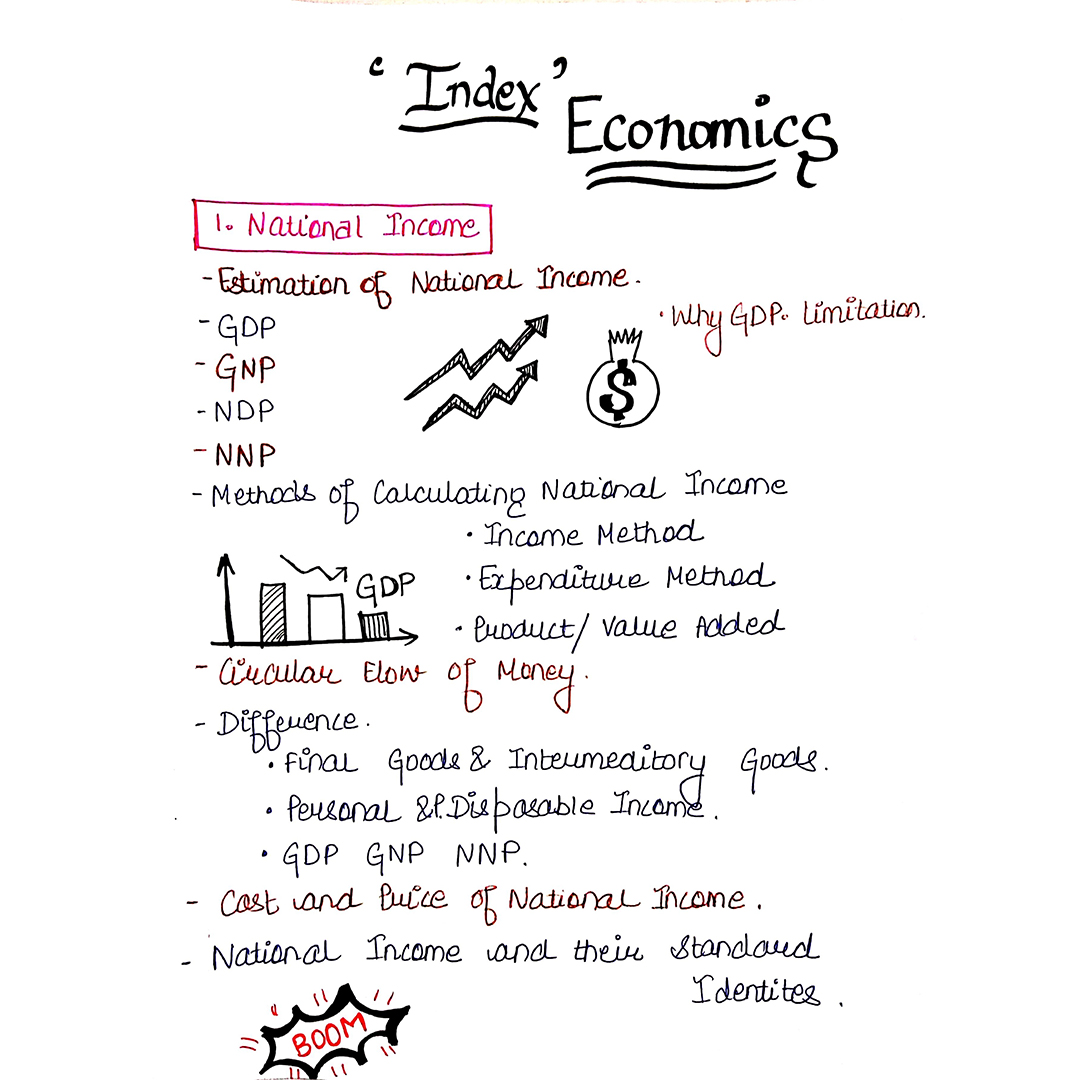 ‘Index’
Economics
1. National Income
- Estimation of National Income.
• Why GDP. Limitation.
- GDP
- GNP
- NDP
- NNP
$
- Methods of Calculating National Income
• Income Method
• Expenditure Method
• Product/ Value Added
GDP
- Circular Flow of Money.
- Difference.
• Final Goods & Intermeditory Goods.
• Personal & P. Disposable Income.
• GDP GNP NNP.
- Cost and Price of National Income.
- National Income and their Standard
Identites.
BOOM